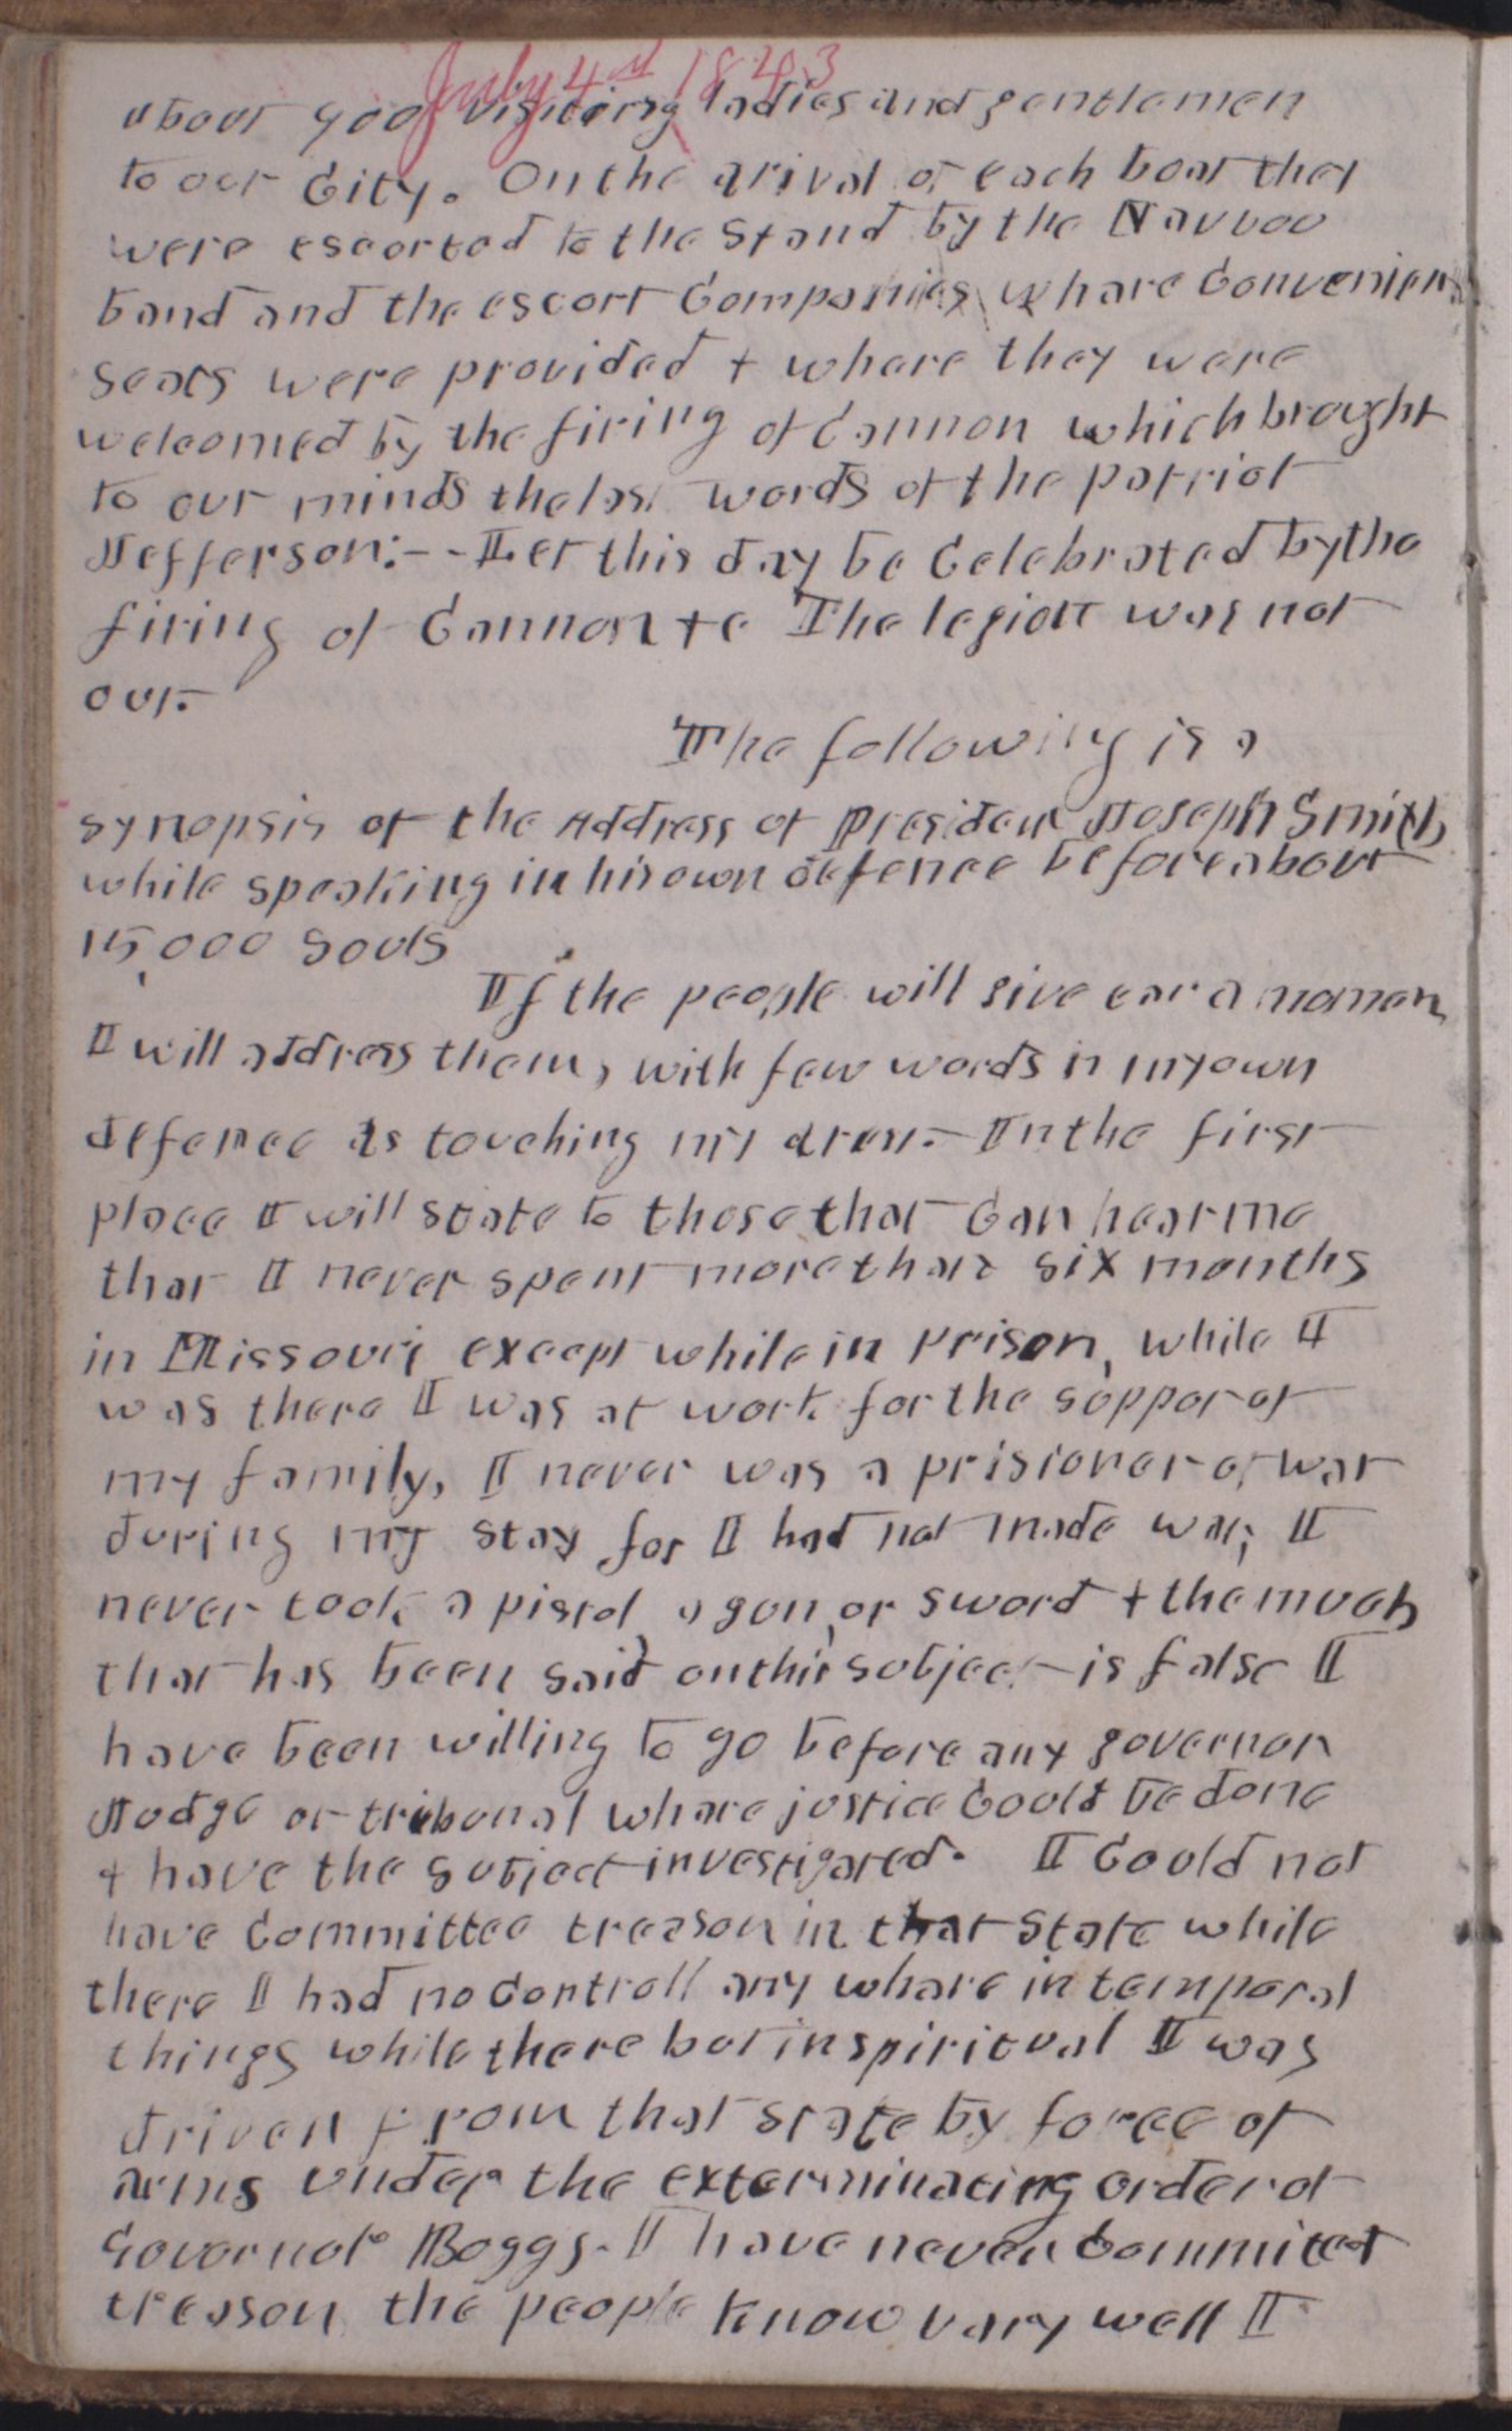 July 4th 1843
about 900 visiting ladies and gentlemen
to our City. On the arival of each boat they
were escorted to the Stand by the Nauvoo
band and the escort Companies whare Convenien
seats were provided + whare they were
welcomed by the firing of Cannon which brought
to our minds the last words of the patriot
Jefferson:-- Let this day be Celebrated by the
firing of Cannon +c The legion was not
out.
The following is a
synopsis of the Address of President Joseph Smith
while speaking in his own defence before about
15,000 souls
If the people will give ear a momen
I will address them, with few words in my own
defence as touching my arest. In the first
place I will state to those that Can hear me
that I never spent more than six months
in Missouri except while in prison, while I
was there I was at work for the support of
my family, I never was a prisioner of war
during my stay for I had not made war, I
never took a pistol, a gun, or sword + the much
that has been said on this subject is false I
have been willing to go before any governor
Judge or tribunal whare justice Could be done
+ have the subject investigated. I Could not
have Committee treason in that State while
there I had no Controll any whare in temporal
things while there but in spiritual I was
driven from that state by force of
arms under the exterminating order of
Governor Boggs. I have never Commited
treason the people know vary well I